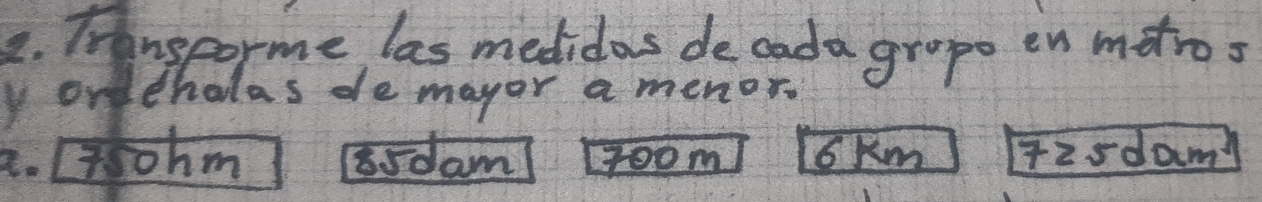 2. Transporme las medidas de cada grupo en metros
y ordehalas de mayor a menor.
a. 750hm 85dam 700m 6Km 725dam